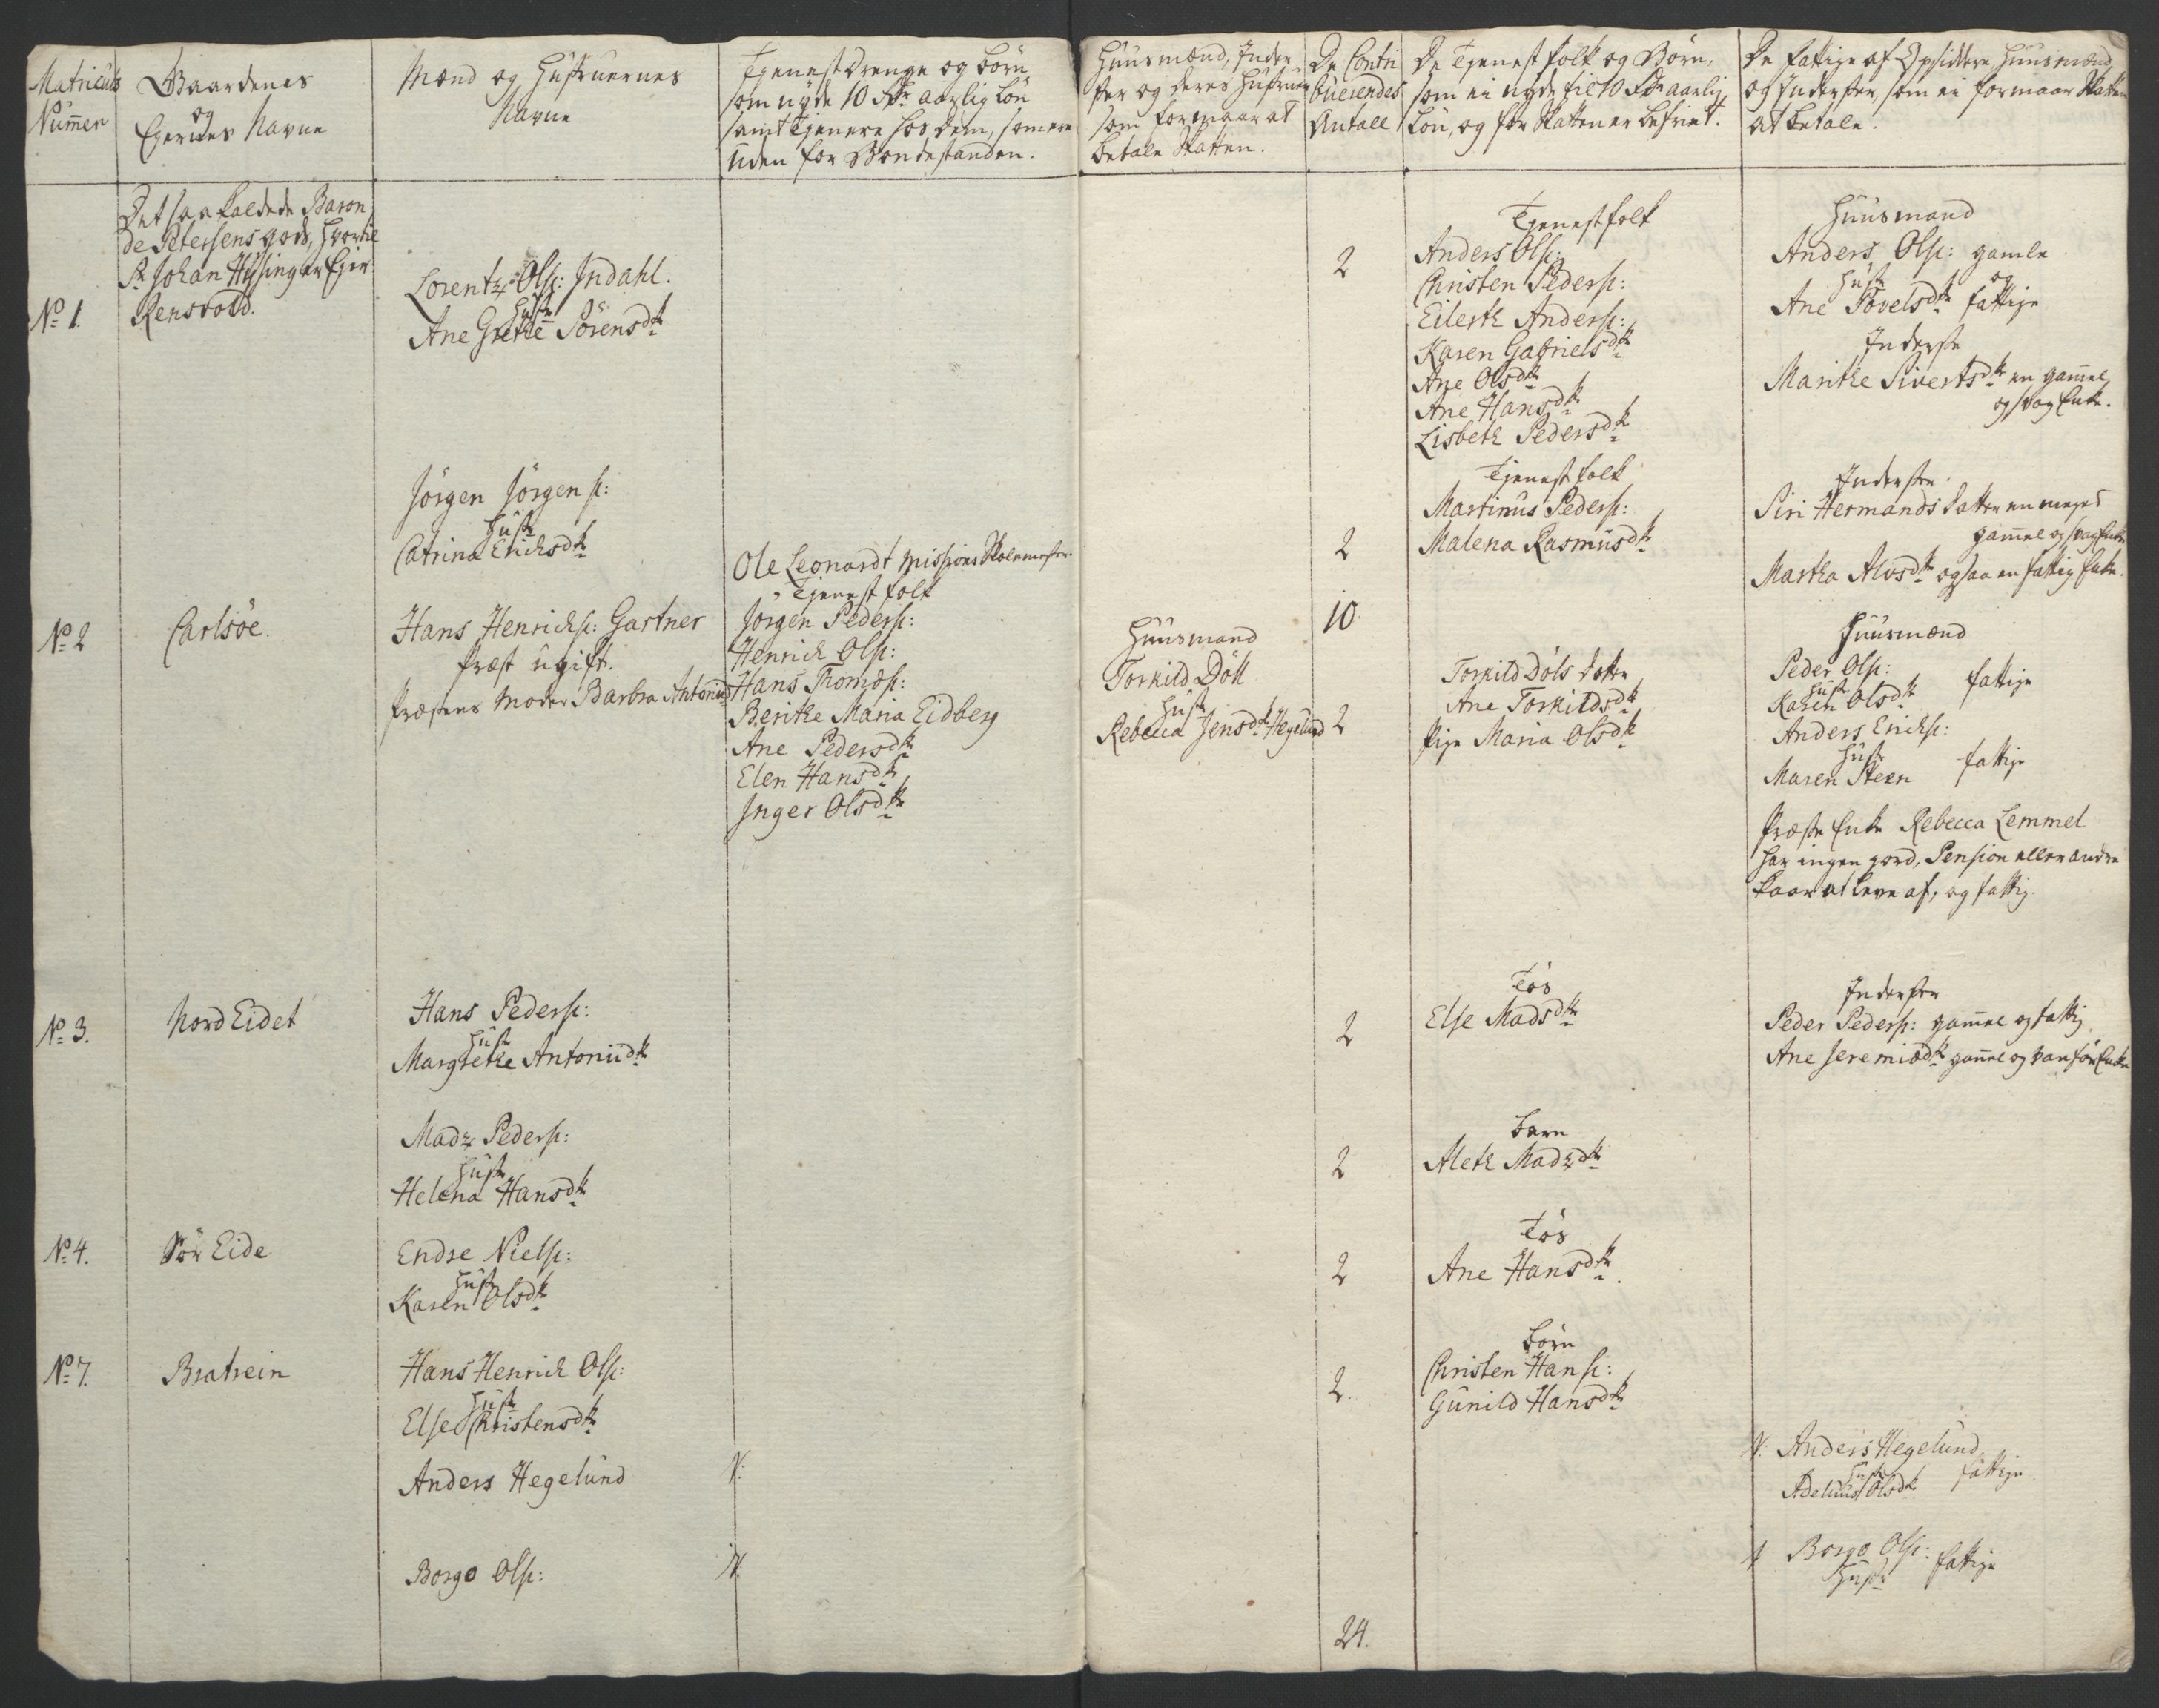 Matriculs
Nummer
Gaardenes
og
Ejernes Navne
Mænd og Hustruernes
Navne
Tjenest Drenge og Börn
som nyde 10 Rdr aarlig Lön
samt Tjenere hos dem, som ere
uden for Bondestanden.
Huusmænd, Inder-
ster og deres Hustruer
som formaar at
betale Skatten.
De Contri
buerendes
Antall
De Tjenest folk og Börn,
som ei nyde til 10 Rdr aarlig
Lön, og for Skatten er befriet.
De fattige af Opsiddere Huusmænd
og Inderster, som ei formaar Skatten
at betale.
Det saa kaldede Baron
de Petersens gods, hvortil
Sr Johan Hysing er Ejer
No 1.
Rensvold.
Lorentz Ols: Indahl.
Hustr
Ane Grethe Sörensdtr
2
Tjenestfolk
Anders Ols:
Christen Peders:
Eilertz Anders:
Karen Gabrielsdtr
Ane Olsdtr
Ane Hansdtr
Lisbeth Pedersdtr
Huusmand
Anders Ols: gamle
Hustr og
Ane Povelsdtr fattige
Inderste
Marithe Sivertsdtr en gamel
og svag Enke.
Jörgen Jörgens:
Hustr
Catrina Ericksdtr
2
Tjenestfolk
Martinus Peders:
Malena Rasmusdtr
Inderster
Siri Hermands Datter en meget
gammel og svag Enke
Martha Alvsdtr ogsaa en fattig Enke.
No 2
Carlsöe.
Hans Henricks: Gartner
Præst ugift.
Præstens Moder Barbra Antonii
Ole Leonardt Missions Skolemester.
Tjenestfolk
Jörgen Peders:
Henrick Ols:
Hans Thomæs:
Berithe Maria Eidberg
Ane Pedersdtr
Elen Hansdtr
Inger Olsdtr
Huusmand
Torkild Döll
Hustr
Rebecca Jensdtr Hegelund
10.
2
Torkild Döls Datter
Ane Torkildsdtr
Pige Maria Olsdtr
Huusmænd
Peder Ols:
Hustr fattige
Karen Olsdtr
Anders Ericks:
Hustr fattige
Maren Steen
Præste Enke Rebecca Lemmel
har ingen gord, Pension eller andre
kaar at leve af, og fattig.
No 3.
Nord Eidet
Hans Peders:
Hustr
Margrethe Antoniidtr
2
Tös
Else Madsdtr
Inderster
Peder Peders: gammel og fattig
Ane Jeremiædtr gammel og vanför Enke
Madz Peders:
Hustr
Helena Hansdtr
2
Barn
Aleth Madzdtr
No 4.
Sör Eide
Endre Niels:
Hustr
Karen Olsdtr
2
Tös
Ane Hansdtr.
No 7.
Bratrein
Hans Henrick Ols:
Hustr
Else Christensdtr
2.
Börn
Christen Hans:
Gunild Hansdtr
Anders Hegelund
N:
N: Anders Hegelund
Hustr fattige
Adelus Olsdtr
Borgo Ols:
N.
Borgo Ols: fattige
Hustr
24.